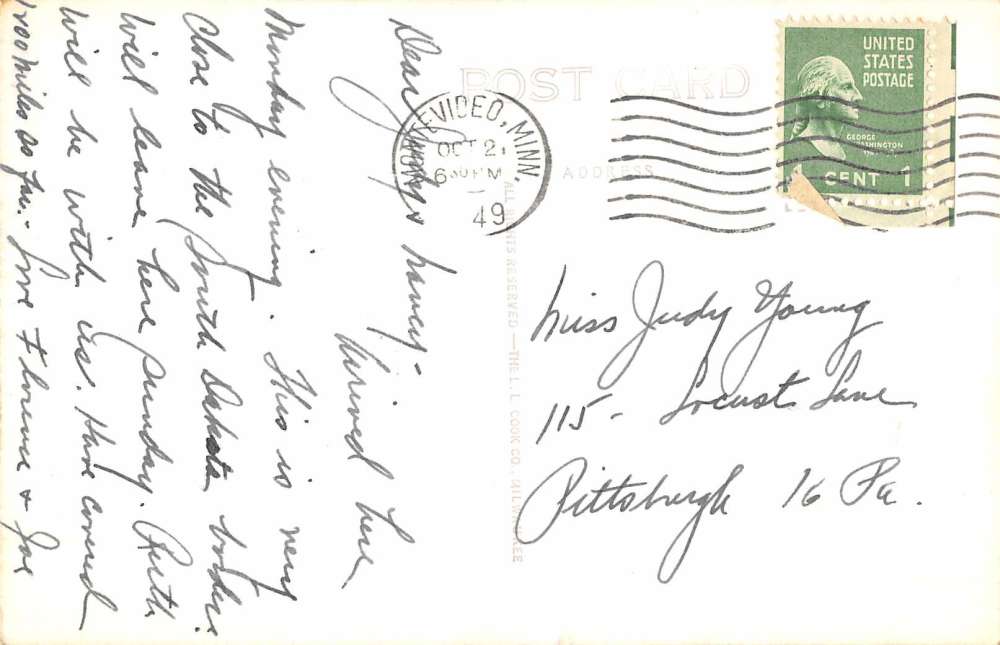 Dear honey -
Arrived here
Monday evening. This is very
close to the South Dakota border.
Will leave here Sunday. Ruth
will be with us. Have covered
1200 miles so far. Love Florence + Joe
POST CARD
ADDRESS
MONTEVIDEO, MINN.
OCT 2
6 30 PM
49
UNITED
STATES
POSTAGE
GEORGE
WASHINGTON
1 CENT 1
ALL RIGHTS RESERVED — THE L. L. COOK CO., MILWAUKEE
Miss Judy Young
115 - Locust Lane
Pittsburgh 16 Pa.